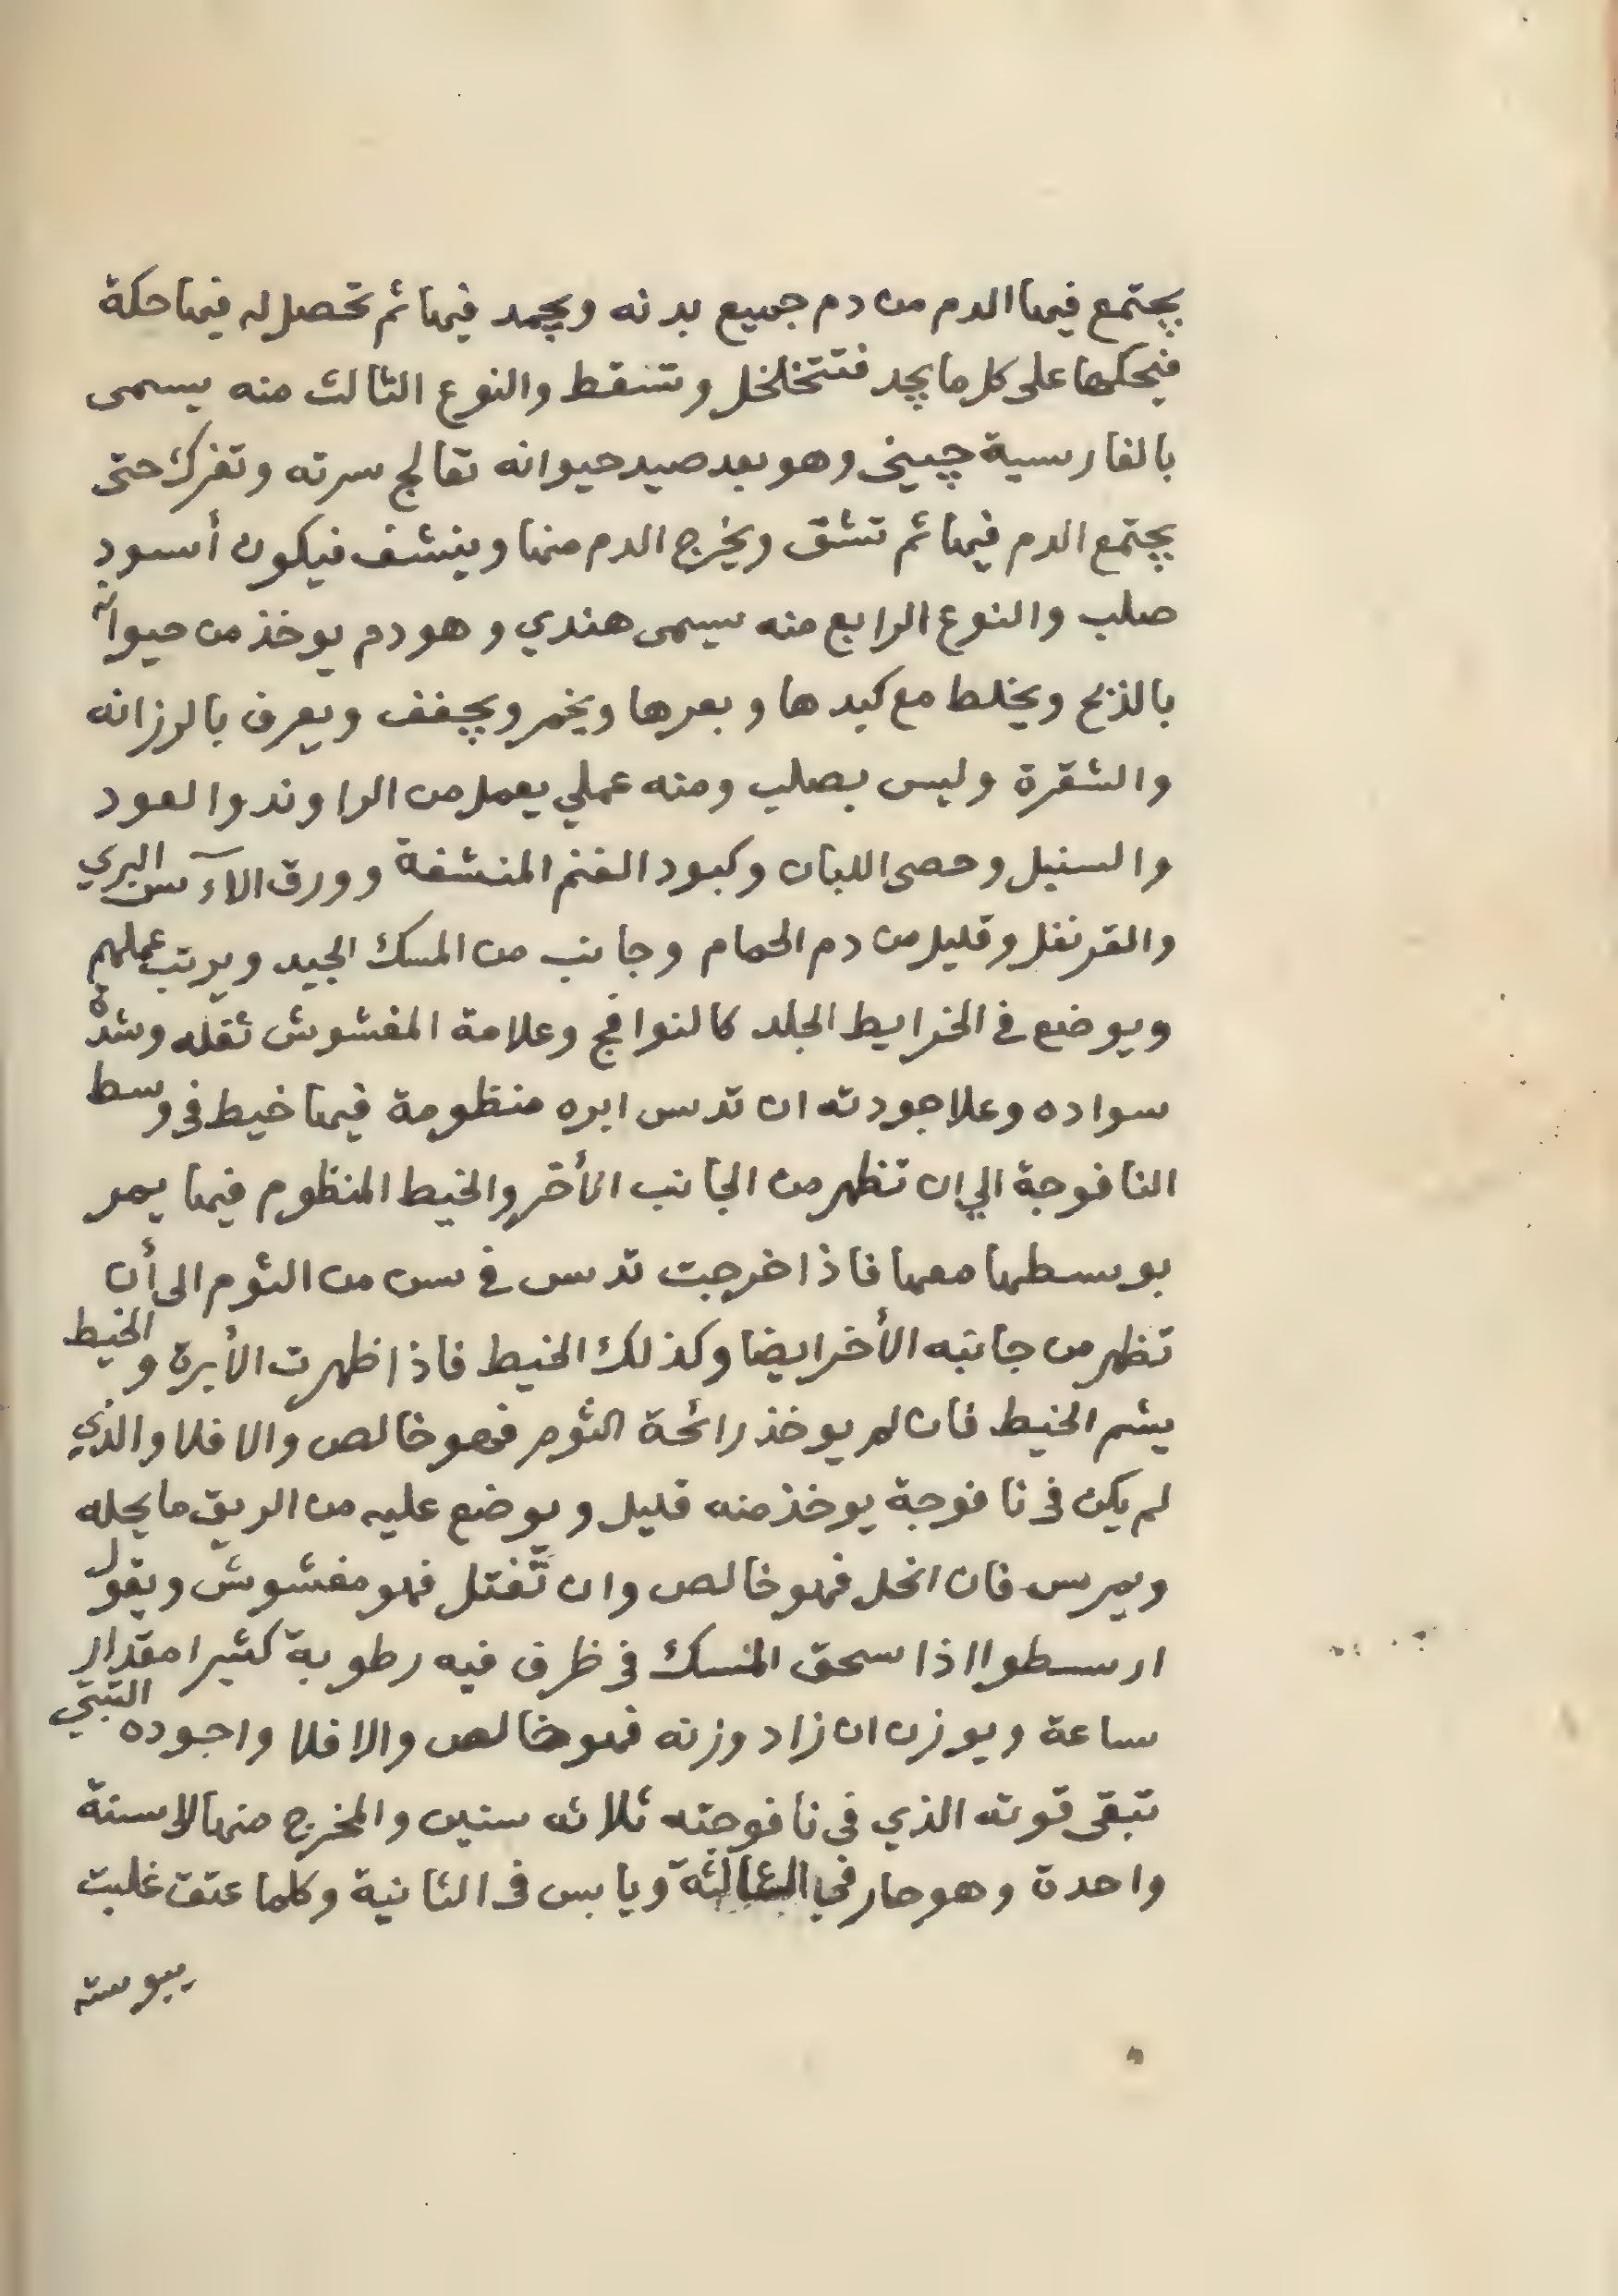 يجتمع فيها الدم من دم جميع بدنه ويجمد فيها ثم تحصل له فيها حكة
فيحكها على كل ما يجد فتتخلخل وتسقط والنوع الثالث منه يسمى
بالفارسية چيني وهو بعد صيد حيوانه تعالج سرته وتفرك حتى
يجتمع الدم فيها ثم تشق ويخرج الدم منها وينشف فيكون أسود
صلب والنوع الرابع منه يسمى هندي وهو دم يوخذ من حيوانه
بالذبح ويخلط مع كبدها وبعرها ويخمر ويجفف ويعرف بالرزانه
والشقرة وليس بصلب ومنه عملي يعمل من الراوند والعود
والسنبل وحصى اللبان وكبود الغنم المنشفة وورق الآس البري
والقرنفل وقليل من دم الحمام وجانب من المسك الجيد ويرتب عملهم
ويوضع في الخرايط الجلد كالنوافج وعلامة المغشوش ثقله وشدة
سواده وعلا جودته ان تدس ابره منظومة فيها خيط في وسط
النافوجة الي ان تظهر من الجانب الأخر والخيط المنظوم فيها يمر
بوسطها معها فاذا خرجت تدس في سن من الثوم الى أن
تظهر من جانبه الأخر ايضا وكذلك الخيط فاذا ظهرت الأبرة والخيط
يشم الخيط فان لم يوخذ رائحة الثوم فهو خالص والا فلا والذي
لم يكن في نافوجة يوخذ منه قليل ويوضع عليه من الريق ما يحله
ويمرس فان انحل فهو خالص وان تفتل فهو مغشوش ويقول
ارسطوا اذا سحق المسك في ظرف فيه رطوبة كثيرا مقدار
ساعة ويوزن ان زاد وزنه فهو خالص والا فلا واجوده التبتي
تبقى قوته الذي في نافوجته ثلاثه سنين والمخرج منها لا سنة
واحدة وهو حار في الثالثة ويابس في الثانية وكلما عتق غلبت
يبوسته